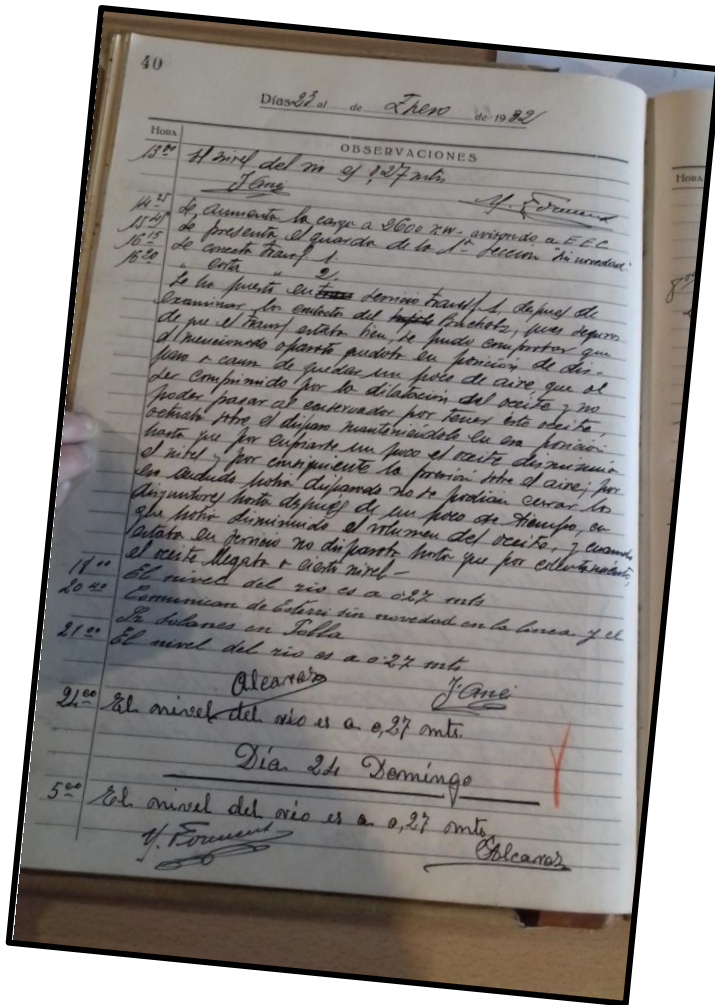 40
Días 23 al de Enero de 1932
HORA OBSERVACIONES
13 00 El nivel del rio es 0,27 mts
J. Ané Y. Forment
14 25 Se aumenta la carga a 2600 Kw- avisando a E E C
15 45 Se presenta el guarda de la 1ª Seccion "sin novedad"
16 15 Se conecta transf 1
16 20 " corta " 2
Se ha puesto en servicio transf 1, despues de
examinar los contactos del Buchotz, pues seguros
de que el transf estaba bien, se pudo comprobar que
el mencionado aparato quedaba en posicion de dis-
paro a causa de quedar un poco de aire que al
ser comprimido por la dilatacion del aceite y no
poder pasar al conservador por tener este aceite,
actuaba sobre el disparo manteniendolo en esa posicion
hasta que por enfriarse un poco el aceite disminuia
el nivel y por consiguiente la presion sobre el aire; por
en cuando habia disparado no se podian cerrar los
disyuntores hasta despues de un poco de tiempo, en
que habia disminuido el volumen del aceite, y cuando
estaba en servicio no disparaba hasta que por calentamiento,
el aceite llegaba a cierto nivel -
18 00 El nivel del rio es a 0'27 mts
20 40 Comunican de Esterri sin novedad en la linea y el
Sr Solanes en Tolla
21 00 El nivel del rio es a 0'27 mts
Alcaraz J. Ané
24 00 El nivel del rio es a 0,27 mts.
Día 24 Domingo
5 00 El nivel del rio es a 0,27 mts.
Y. Forment Alcaraz
HORA